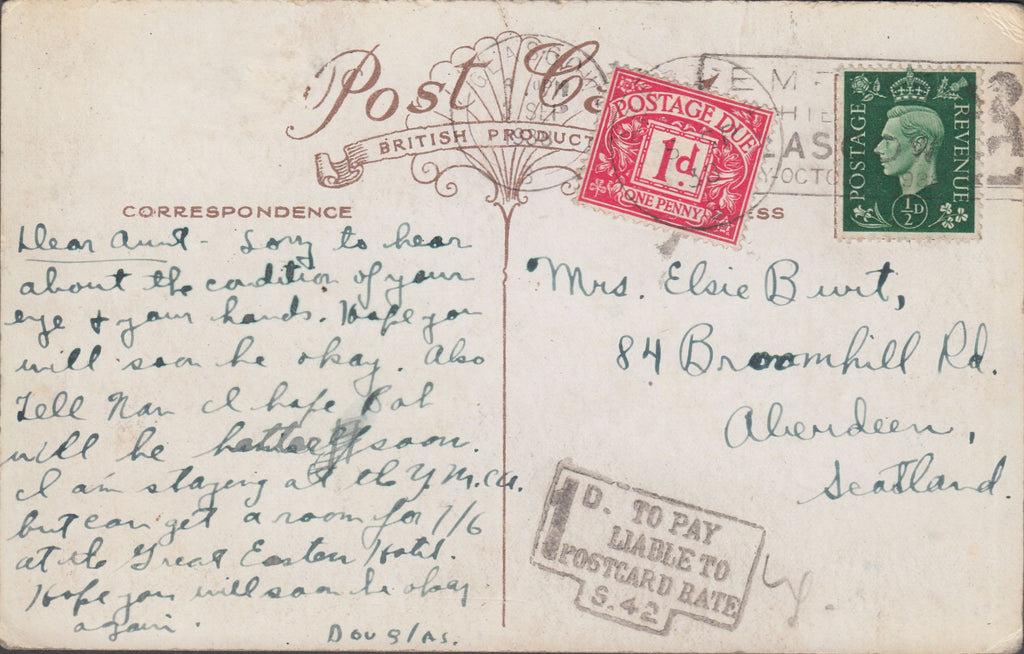 Post Ca
BRITISH PRODUCT
GLASGOW
SEP
EMP
POSTAGE DUE
1d.
ONE PENNY
POSTAGE
REVENUE
½D
-OCTO
CORRESPONDENCE
ESS
Dear Aunt - Sorry to hear
about the condition of your
eye & your hands. Hope you
will soon be okay. Also
Tell Nan I hope Bob
will be better soon.
I am staying at the Y.M.C.A.
but can get a room for 7/6
at the Great Eastern Hotel.
Hope you will soon be okay
again.
Douglas.
Mrs. Elsie Burt,
84 Broomhill Rd.
Aberdeen,
Scotland.
1D. TO PAY
LIABLE TO
POSTCARD RATE
S.42